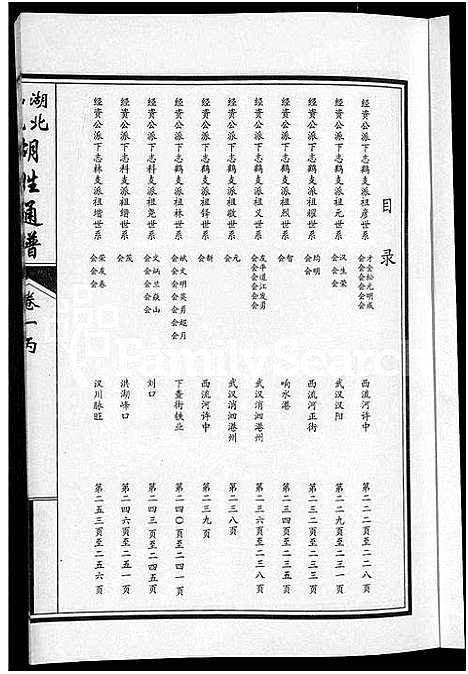 目录
经资公派下志鹤支派祖彦世系 才会 金会 松会 元会 明会 成会 西流河许中 第二二二页至二二八页
经资公派下志鹤支派祖元世系 汉会 生会 荣会 武汉汉阳 第二二九页至二三一页
经资公派下志鹤支派祖耀世系 均会 明会 西流河正街 第二三二页至二三三页
经资公派下志鹤支派祖烈世系 智会 响水港 第二三四页至二三五页
经资公派下志鹤支派祖义世系 友会 平会 道会 江会 发会 勇会 武汉消泗港州 第二三六页至二三八页
经资公派下志鹤支派祖敬世系 凡会 武汉消泗港州 第二三八页
经资公派下志鹤支派祖锋世系 新会 西流河许中 第二三九页
经资公派下志鹤支派祖林世系 斌会 文会 明会 英会 勇会 超会 月会 下查街铁业 第二四〇页至二四一页
经资公派下志科支派祖尧世系 文会 炳会 兰会 焱会 山会 刘口 第二四三页至二四五页
经资公派下志科支派祖缙世系 茂会 洪湖峰口 第二四六页至二五一页
经资公派下志林支派祖增世系 荣会 友会 春会 汉川脉旺 第二五三页至二五六页
湖北
胡姓通谱
卷一丙
FamilySearch